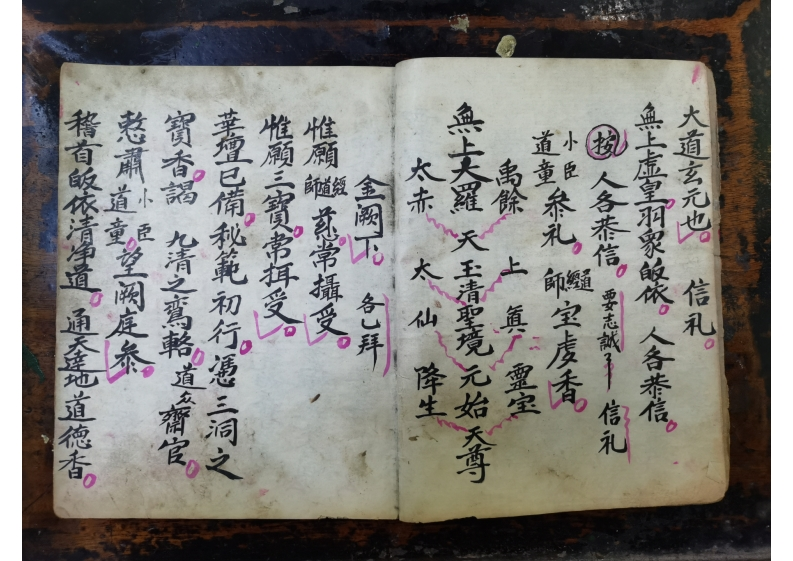 大道玄元也 信礼
無上虛皇羽眾皈依 人各恭信
按 人各恭信 要志誠 信礼
小臣道童 參礼 經道師 宝虔香
禹餘 上真 靈宝
無上大羅天玉清聖境元始天尊
太赤 太仙 降生
金闕下 各乙拜
惟願經道師慈常攝受
惟願三寶常揖受
華壇已備秘範初行憑三洞之
寶香謁九清之鸞輅道众齋官
憗肅小臣道童望闕庭參
稽首皈依清净道 通天達地道德香